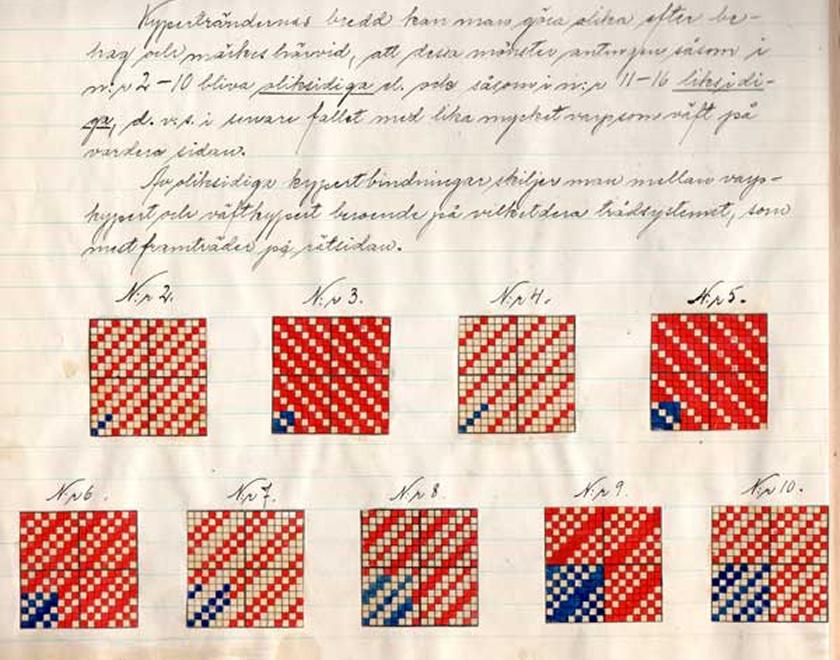 Kyperträndernas bredd kan man göra olika efter be-
hag och märkes härvid, att dessa mönster antingen såsom i
n:r 2-10 bliva oliksidiga el. ock såsom i n:r 11-16 liksidi-
ga, d. v. s. i senare fallet med lika mycket varp som väft på
vardera sidan.
Av oliksidiga kypertbindningar skiljer man mellan varp-
kypert och väftkypert beroende på vilketdera trådsystemet, som
mest framträder på rätsidan.
N:r 2. N:r 3. N:r 4. N:r 5.
N:r 6. N:r 7. N:r 8. N:r 9. N:r 10.